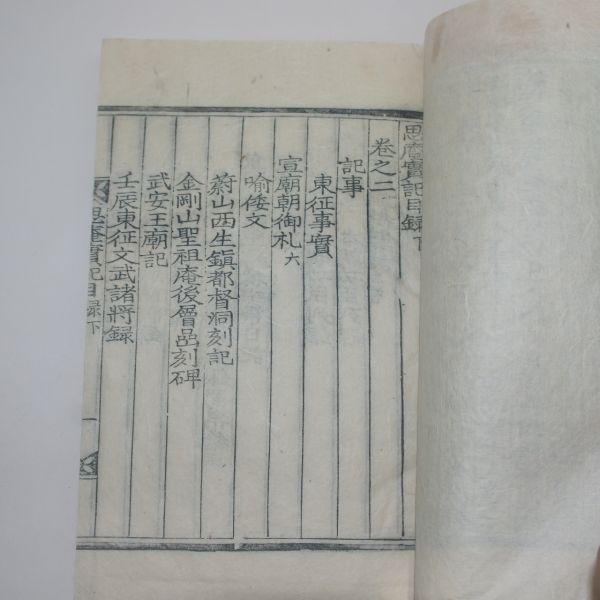 思庵實記目録下
卷之二
記事
東征事實
宣廟朝御札六
喻倭文
蔚山西生鎮都督洞刻記
金剛山聖祖庵後層嵒刻碑
武安王廟記
壬辰東征文武諸將録
思庵實記目録下
一